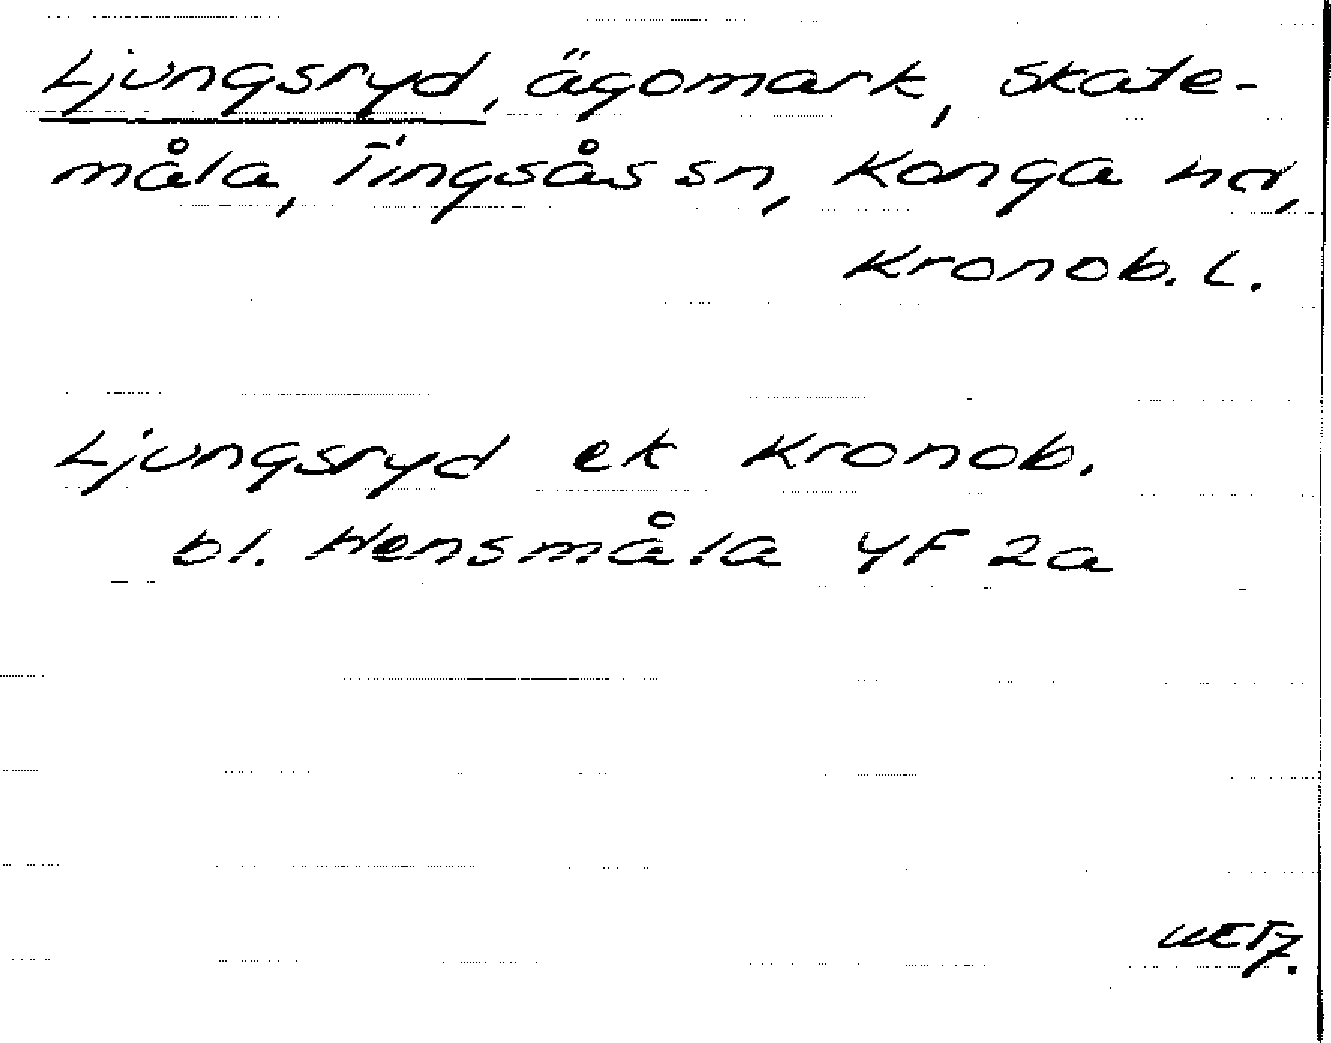 Ljungsryd, ägomark, Skate-
måla, Tingsås sn, Konga hd,
Kronob. l.
Ljungsryd ek Kronob.
bl. Hensmåla 4F 2a